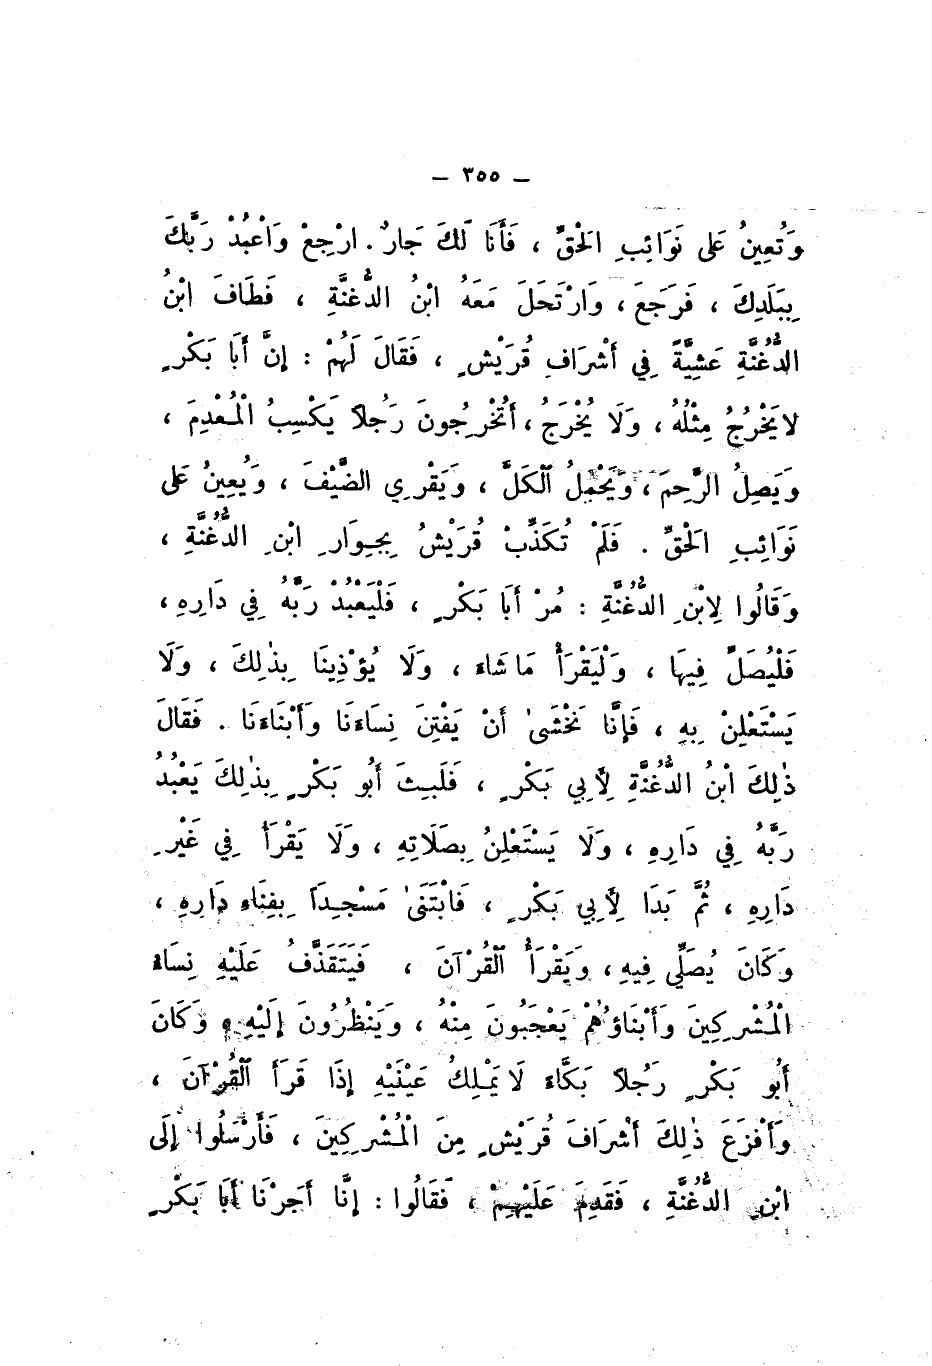 – ٣٥٥ –
وَتُعِينُ عَلَى نَوَائِبِ الْحَقِّ ، فَأَنَا لَكَ جَارٌ . ارْجِعْ وَاعْبُدْ رَبَّكَ
بِبَلَدِكَ ، فَرَجَعَ ، وَارْتَحَلَ مَعَهُ ابْنُ الدُّغُنَّةِ ، فَطَافَ ابْنُ
الدُّغُنَّةِ عَشِيَّةً فِي أَشْرَافِ قُرَيْشٍ ، فَقَالَ لَهُمْ : إِنَّ أَبَا بَكْرٍ
لا يَخْرُجُ مِثْلُهُ ، وَلَا يُخْرَجُ ، أَتُخْرِجُونَ رَجُلاً يَكْسِبُ الْمُعْدِمَ ،
وَيَصِلُ الرَّحِمَ ، وَيَحْمِلُ ٱلْكَلَّ ، وَيَقْرِي الضَّيْفَ ، وَيُعِينُ عَلَى
نَوَائِبِ الْحَقِّ . فَلَمْ تُكَذِّبْ قُرَيْشُ بِجِوَارِ ابْنِ الدُّغُنَّةِ ،
وَقَالُوا لِابْنِ الدُّغُنَّةِ : مُرْ أَبَا بَكْرٍ ، فَلْيَعْبُدْ رَبَّهُ فِي دَارِهِ ،
فَلْيُصَلِّ فِيهَا ، وَلْيَقْرَأْ مَا شَاءَ ، وَلَا يُؤْذِينَا بِذٰلِكَ ، وَلَا
يَسْتَعْلِنْ بِهِ ، فَإِنَّا نَخْشَىٰ أَنْ يَفْتِنَ نِسَاءَنَا وَأَبْنَاءَنَا . فَقَالَ
ذٰلِكَ ابْنُ الدُّغُنَّةِ لِأَبِي بَكْرٍ ، فَلَبِثَ أَبُو بَكْرٍ بِذٰلِكَ يَعْبُدُ
رَبَّهُ فِي دَارِهِ ، وَلَا يَسْتَعْلِنُ بِصَلَاتِهِ ، وَلَا يَقْرَأُ فِي غَيْرِ
دَارِهِ ، ثُمَّ بَدَا لِأَبِي بَكْرٍ ، فَابْتَنَىٰ مَسْجِداً بِفِنَاءِ دَارِهِ ،
وَكَانَ يُصَلِّي فِيهِ ، وَيَقْرَأُ ٱلْقُرْآنَ ، فَيَتَقَذَّفُ عَلَيْهِ نِسَاءُ
الْمُشْرِكِينَ وَأَبْنَاؤُهُمْ يَعْجَبُونَ مِنْهُ ، وَيَنْظُرُونَ إِلَيْهِ ، وَكَانَ
أَبُو بَكْرٍ رَجُلاً بَكَّاءً لَا يَمْلِكُ عَيْنَيْهِ إِذَا قَرَأَ ٱلْقُرْآنَ ،
وَأَفْزَعَ ذٰلِكَ أَشْرَافَ قُرَيْشٍ مِنَ الْمُشْرِكِينَ ، فَأَرْسَلُوا إِلَى
ابْنِ الدُّغُنَّةِ ، فَقَدِمَ عَلَيْهِمْ ، فَقَالُوا : إِنَّا أَجَرْنَا أَبَا بَكْرٍ